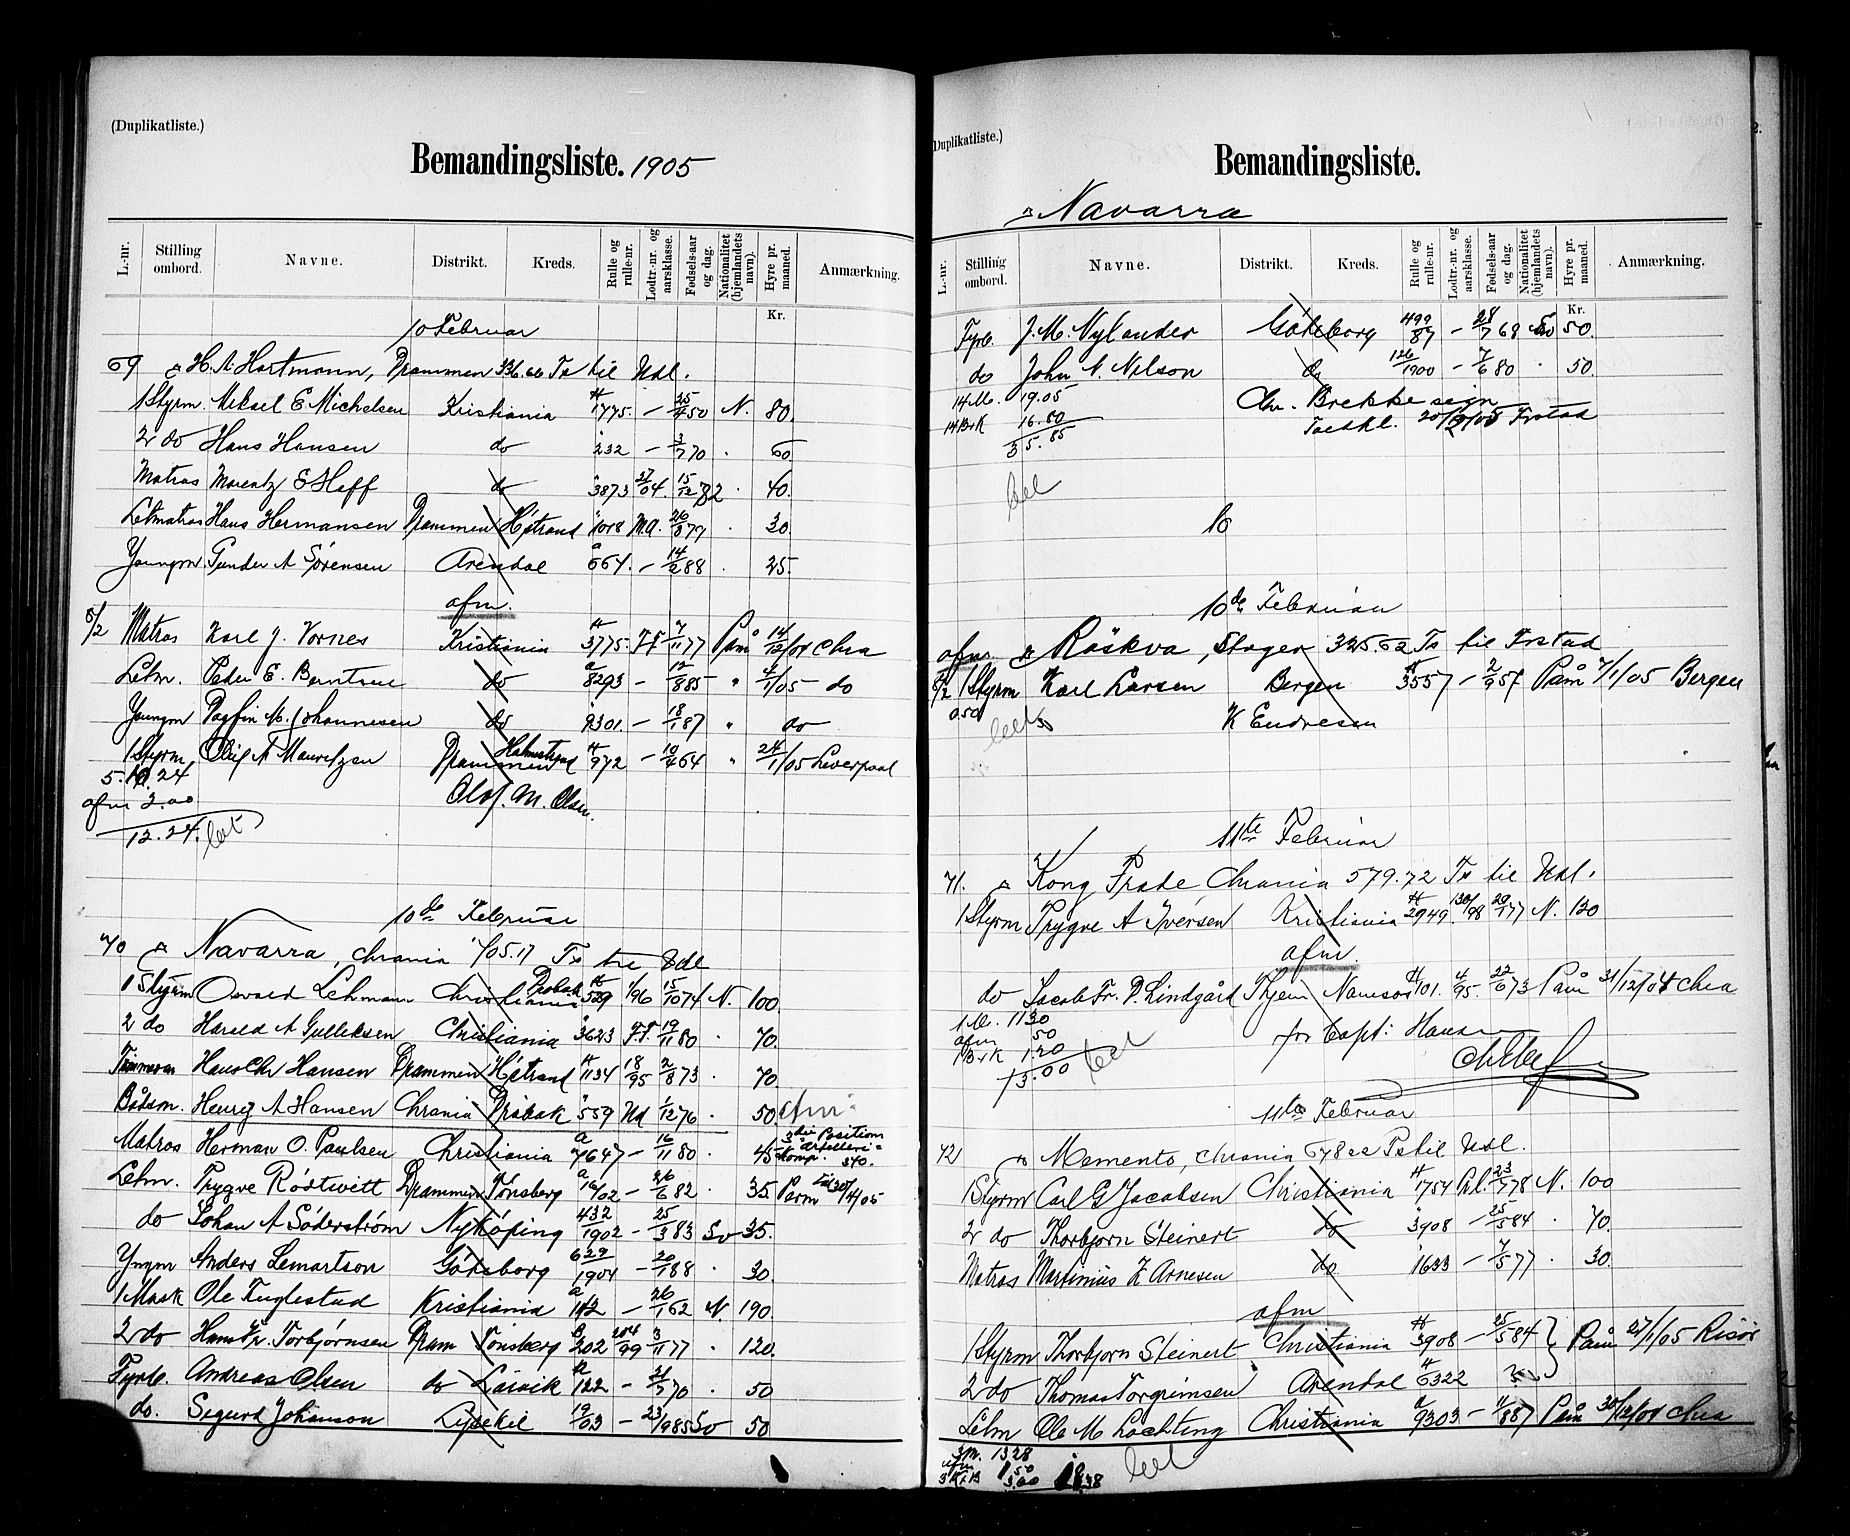 (Duplikatliste.)
Bemandingsliste. 1905
L.-nr. Stilling ombord. Navne. Distrikt. Kreds. Rulle og rulle-nr. Lodtr.-nr. og aarsklasse. Fødsels-aar og dag. Nationalitet (hjemlandets navn). Hyre pr. maaned. Anmærkning.
Kr.
10 Februar
69 H. A. Hartmann, Drammen 336.66 Ts til Udl.
1 Styrm. Mikael E Michelsen Kristiania H 1775. — 25/4 50 N. 80.
2 do Hans Hansen do 232 — 3/7 70 . 60.
Matros Marentz E Hoff do 3873 37/04. 15/12 82 . 40.
Letmatros Hans Hermansen Drammen Hstrand 1018 26/3 79 . 30.
Youngm Gunder A Sørensen Arendal a 664. — 14/2 88 . 25.
afm.
8/2 Matros Karl J. Vornes Kristiania H 3775. F.F. 7/11 77 Paam 14/12/04 Chra
Letm. Peder E. Berntsen do a 8293 — 12/8 85 " 2/1/05 do
Youngm Dagfin M. Johannesen do 9301. — 18/1 87 " do
1 Styrm. A Mauritzen Drammen Holmestrand H 972 — 10/4 64 " 24/1/05 Liverpool
5. 10.24
afm 2.00
Olaf. M. Olsen.
12.24. bet
10de Februar
70 Navarra, Chrania 1705.17 Ts til Udl
1 Styrm Osvald Lehmann Christiania Drøbak H 529 1/96 15/10 74 N. 100.
2 do Harald A Gulliksen Christiania 3623 F.F. 19/11 80 . 70.
Tømmerm Hans Chr Hansen Drammen Hstrand H 1134 18/95 2/8 73 . 70.
Bådsm. Henrij A Hansen Chrania Drøbak 559 Ud 1/12 76 . 50. afm
Matros Herman O. Paulsen Christiania a 7647 — 16/11 80 . 45
Letm. Trygve Rödtwitt Drammen Tønsberg a 16/02 — 26/6 82 . 35.
do Johan A Söderström Nyköping 432/1902 — 25/3 83 Sv 35.
Yngm Anders Lemartson Göteborg 629/1904 — 20/1 88 . 30.
1 Mask Ole Fuglestad Kristiania a 112 — 26/1 62 N. 190.
2 do Hans Fr. Torbjörnsen Dram Tönsberg 202 204/99 3/11 77 . 120.
Fyrb. Andreas Olsen do Larvik 122 — 21/7 70 . 50
do. Sigurd Johanson Lysekil 19/03 — 23/9 85 Sv 50
(Duplikatliste.)
Bemandingsliste.
Navarra
L.-nr. Stilling ombord. Navne. Distrikt. Kreds. Rulle og rulle-nr. Lodtr.-nr. og aarsklasse. Fødsels-aar og dag. Nationalitet (hjemlandets navn). Hyre pr. maaned. Anmærkning.
Kr.
Fyrb. J. M. Nylander Göteborg 499/87 — 28/7 68 Sv 50.
do John A. Nilson do 126/1900 — 7/6 80 . 50.
14 M. 19.05
Chr. Brekke sign
14 B&K 16.80
20/2/05 Frstad
35.85
bet
10de Februar
afm. Röskva, Stager 325.62 Ts til Frstad
8/2 1 Styrm Karl Larsen Bergen H 3557 — 2/9 57 Paam 7/1/05 Bergen
050
bet
K Endresen
11te Februar
71. Kong Frode Chrania 579.72 Ts til Udl.
1 Styrm Trygve A Iversen Kristiania H 2949 130/98 29/1 77 N. 130
afm.
do Jacob Fr. P. Lindgård Thjem Namsos H 101. 4/95. 22/6 73 Paam 31/12/04 Chra
1 M. 1130
afm 50
1 B&K 1.20
for Capt: Hansen
13.00 bet
11te Februar
72 Memento, Chrania 678 Ts til Udl.
1 Styrm Carl G Jacobsen Christiania H 1754 23/7 78 N. 100
2 do Thorbjorn Steinert do 3908 — 25/5 84 . 70.
Matros Martinius Z Arnesen do 1633 — 7/5 77 . 30.
afm
1 Styrm Thorbjorn Steinert Christiania H 3908 — 25/5 84 Paam 27/1/05 Risör
2 do Thomas Torgrimsen Arendal H 6322
Letm Ole M Lochting Christiania a 9303 — 11/8 87 Paam 30/12/04 Chra
3 M. 1328
afm 1.50
bet